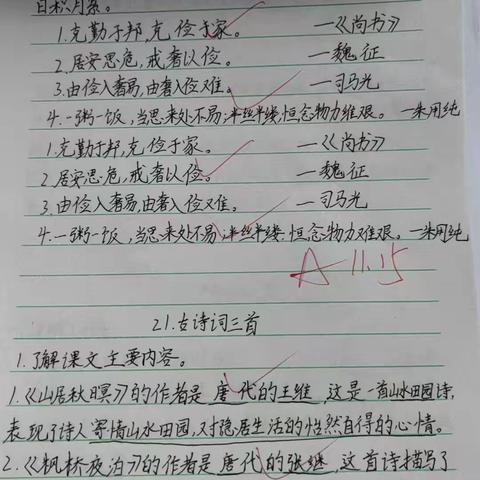 日积月累。
1.克勤于邦,克俭于家。 —《尚书》
2.居安思危,戒奢以俭。 —魏征
3.由俭入奢易,由奢入俭难。 —司马光
4.一粥一饭,当思来处不易;半丝半缕,恒念物力维艰。 —朱用纯
1.克勤于邦,克俭于家。 —《尚书》
2.居安思危,戒奢以俭。 —魏征
3.由俭入奢易,由奢入俭难。 —司马光
4.一粥一饭,当思来处不易;半丝半缕,恒念物力维艰。 —朱用纯
A 11.15
21.古诗词三首
1.了解课文主要内容。
1.《山居秋暝》的作者是唐代的王维,这是一首山水田园诗,
表现了诗人寄情山水田园,对隐居生活的怡然自得的心情。
2.《枫桥夜泊》的作者是唐代的张继,这首诗描写了